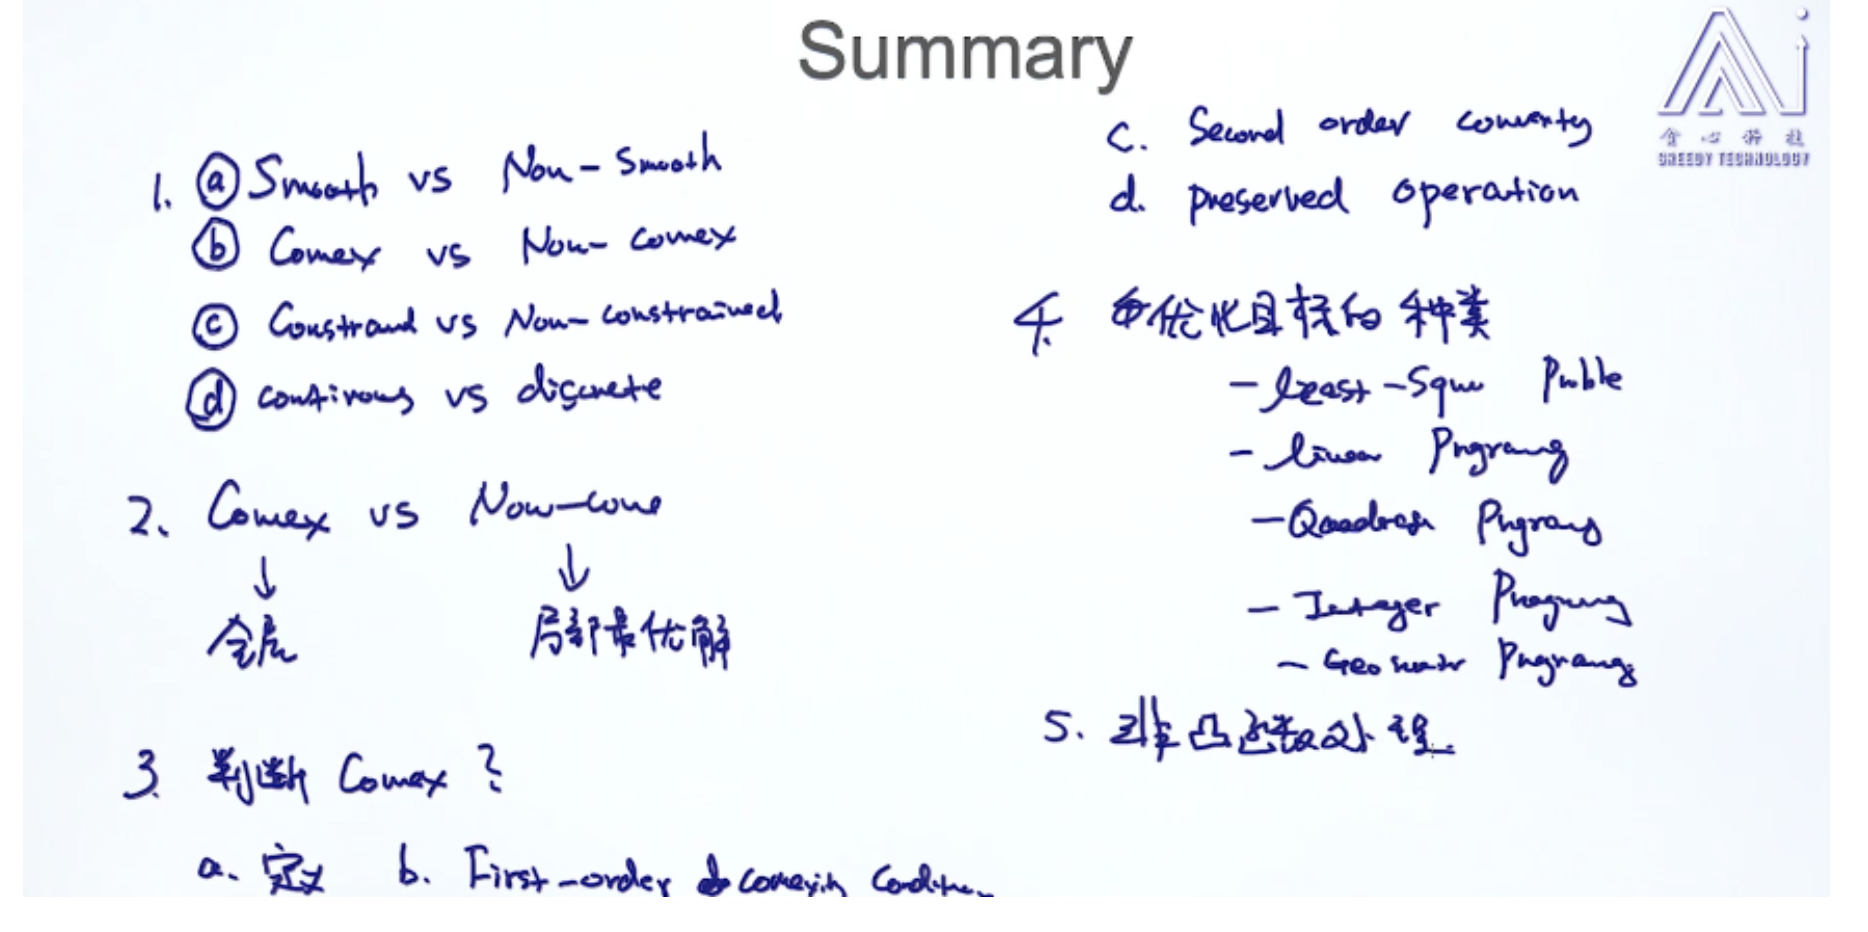 Summary
1. ⓐ Smooth vs Non-Smooth
ⓑ Convex vs Non-convex
ⓒ Constraind vs Non-constrained
ⓓ continous vs discrete
2. Convex vs Non-conve
↓ ↓
全局 局部最优解
3. 判断 Convex ?
a. 定义 b. First-order convexity Condition
c. Second order convexity
d. preserved operation
4. 优化目标的种类
- least-Squ Proble
- linear Programg
- Quadratic Programg
- Integer Programg
- Geometr Programg
5. 非凸函数处理
贪心科技
GREEDY TECHNOLOGY